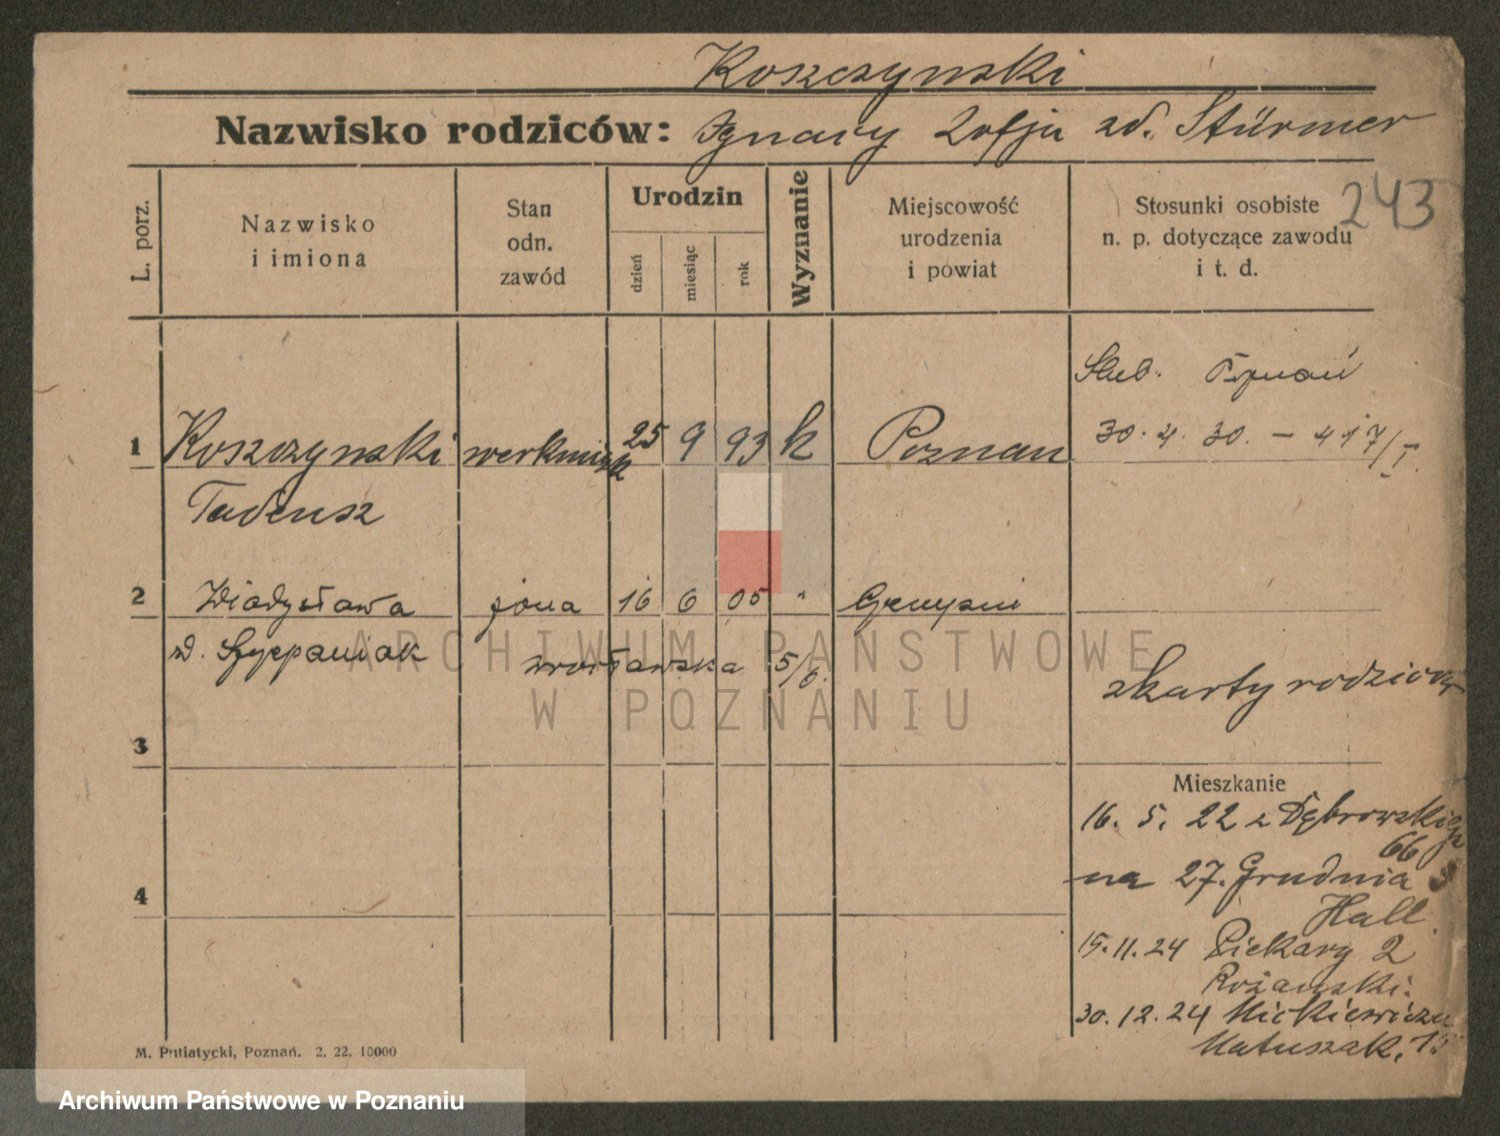 Koszczynski
Nazwisko rodziców: Ignacy Zofja zd. Stürmer
243
L. porz.
Nazwisko
i imiona
Stan
odn.
zawód
Urodzin
dzień
miesiąc
rok
Wyznanie
Miejscowość
urodzenia
i powiat
Stosunki osobiste
n. p. dotyczące zawodu
i t. d.
Ślub. Poznań
30. 4. 30. – 417/I.
1 Koszczynski 25 9 93 k Poznan
Tadeusz
2 Władysława żona 16 6 05 "
zd. Szczepaniak wrocławska 5/6.
z karty rodziców
3
Mieszkanie
16. 5. 22 z Dąbrowskiego
66
na 27. Grudnia
4
Hall.
15. 11. 24 Piekary 2
Rożanski.
30. 12. 24 Mickiewicza
Matuszak.
M. Putiatycki, Poznań. 2. 22. 10000
ARCHIWUM PAŃSTWOWE
W POZNANIU
Archiwum Państwowe w Poznaniu